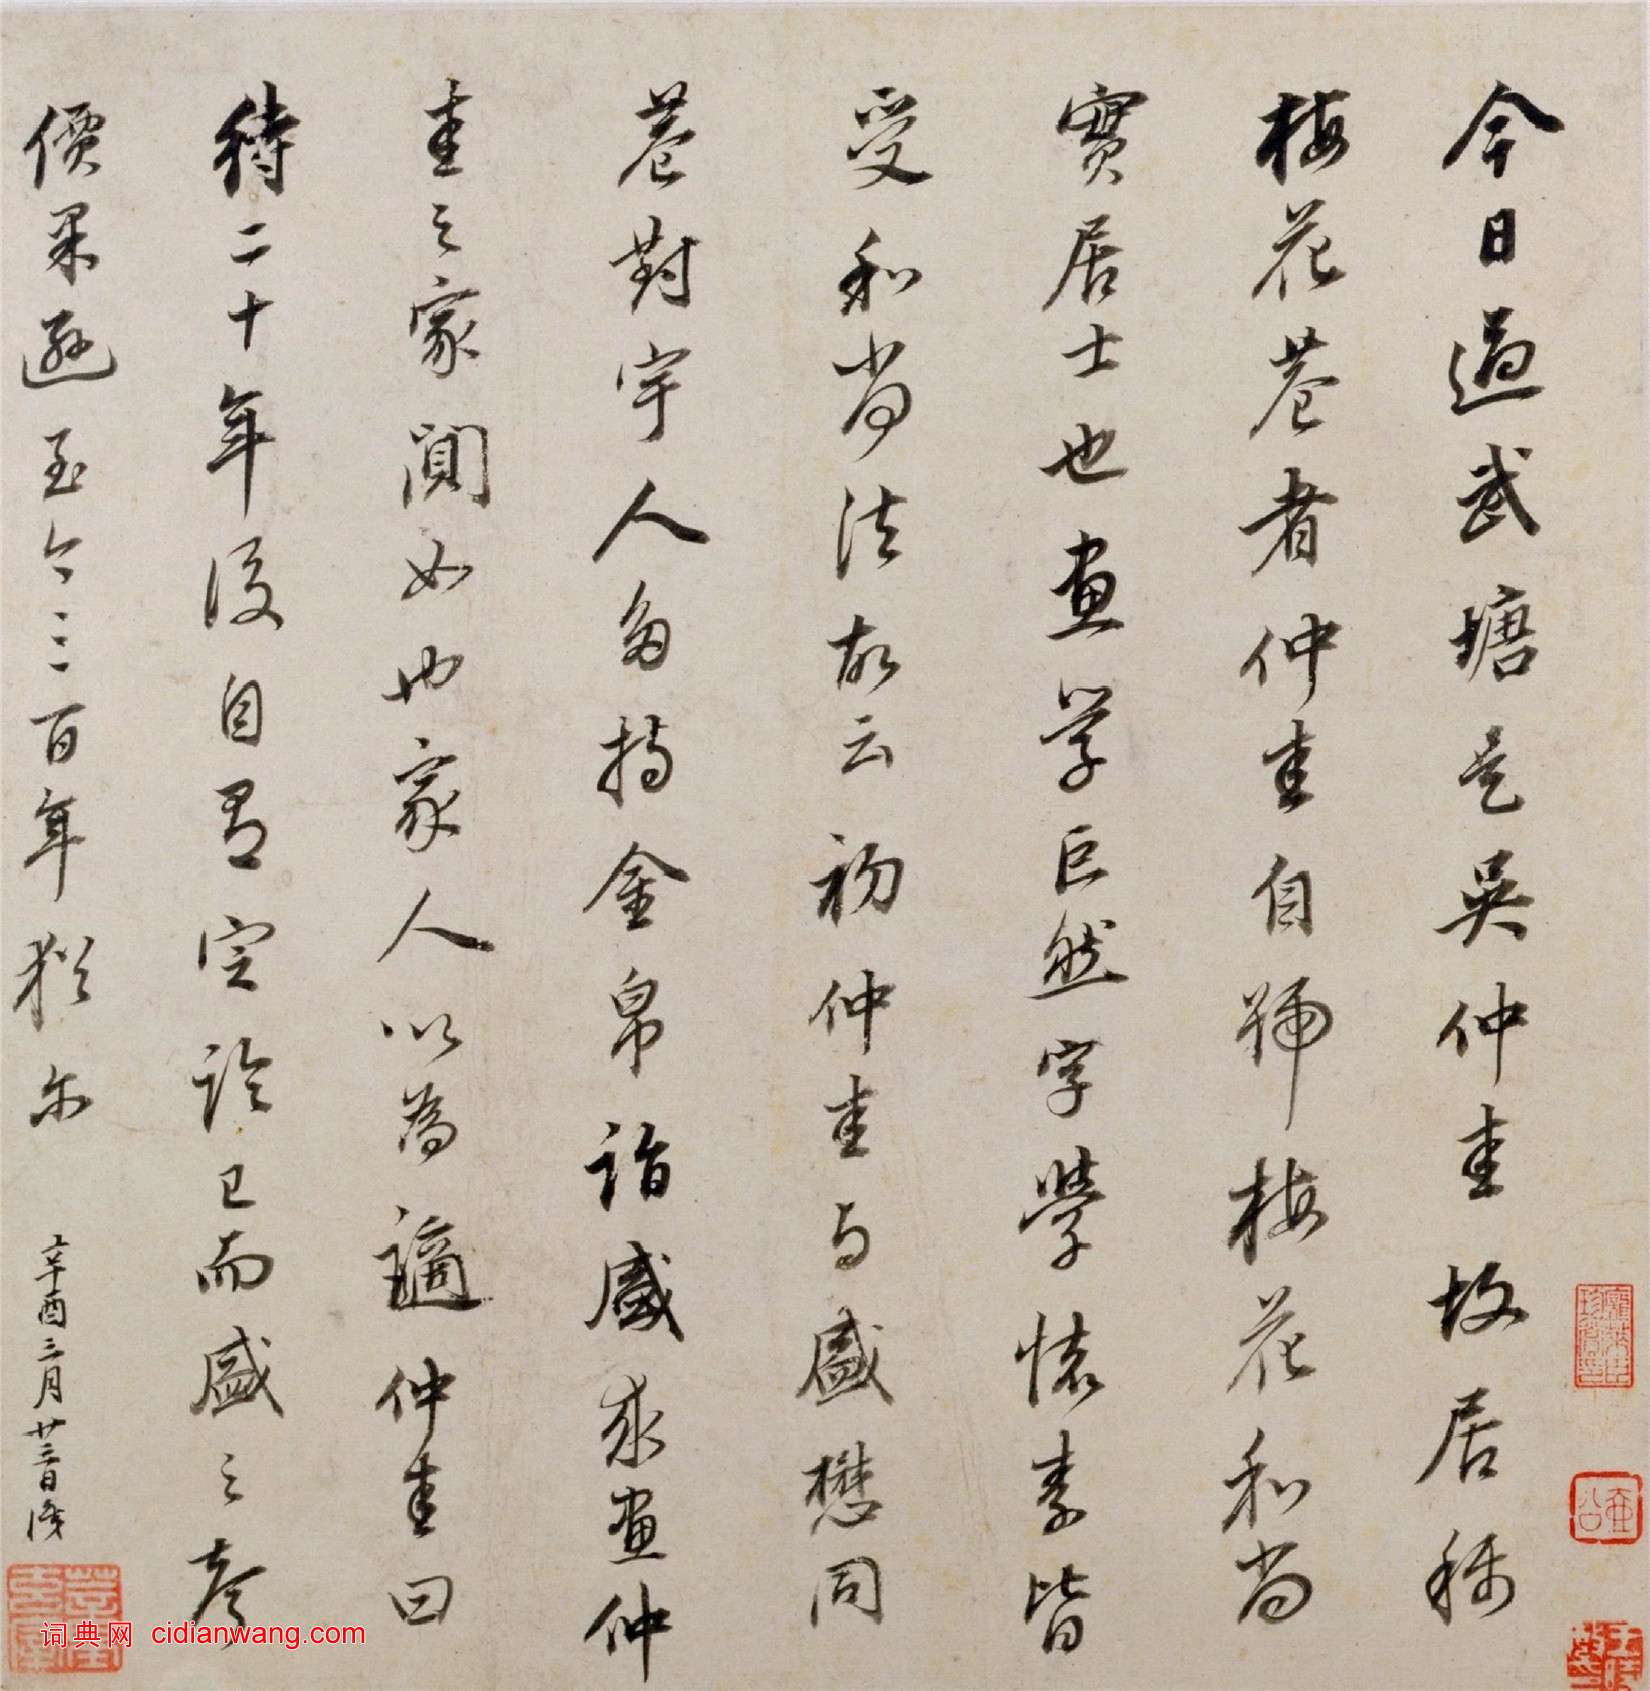 今日過武塘是吳仲圭故居稱
梅花菴者仲圭自號梅花和尚
實居士也畫學巨然字學懷素皆
受和尚法故云初仲圭与盛懋同
菴對宇人多持金帛詣盛求畫仲
圭之家闃如也家人以為讁仲圭曰
待二十年後自有定論已而盛之声
價果遜至今三百年猶尔
辛酉三月廿三日識
词典网 cidianwang.com